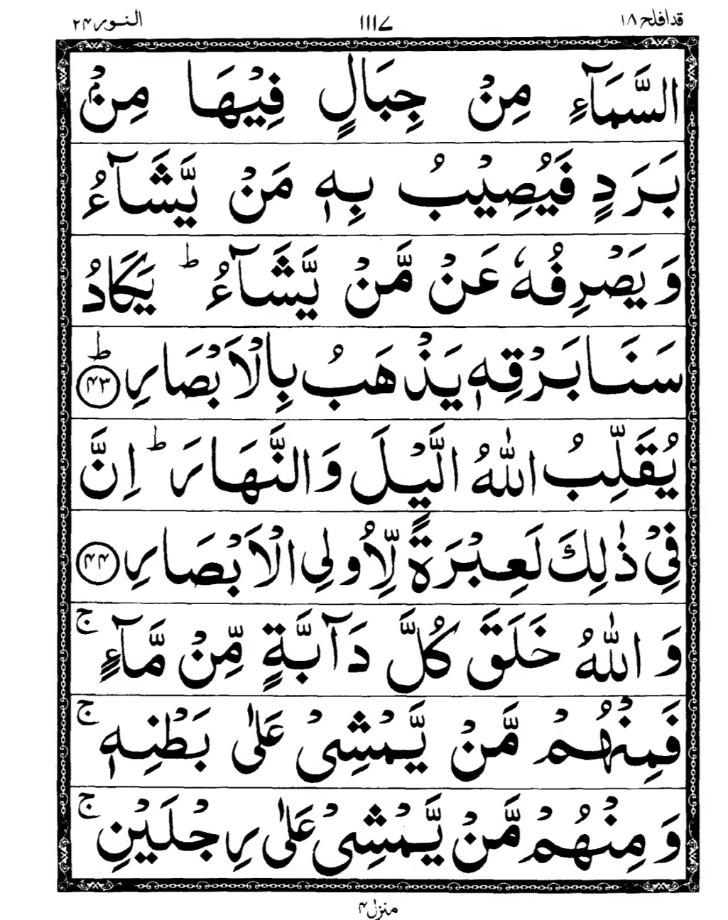 قد افلح ۱۸ ۱۱۱۷ النور ۲۴
السَّمَآءِ مِنْ جِبَالٍ فِيْهَا مِنْۢ
بَرَدٍ فَيُصِيْبُ بِهٖ مَنْ يَّشَآءُ
وَيَصْرِفُهٗ عَنْ مَّنْ يَّشَآءُ ؕ يَكَادُ
سَنَا بَرْقِهٖ يَذْهَبُ بِالْاَبْصَارِ ؕ ﴿۴۳﴾
يُقَلِّبُ اللّٰهُ الَّيْلَ وَالنَّهَارَ ؕ اِنَّ
فِيْ ذٰلِكَ لَعِبْرَةً لِّاُولِي الْاَبْصَارِ ﴿۴۴﴾
وَاللّٰهُ خَلَقَ كُلَّ دَآبَّةٍ مِّنْ مَّآءٍ ۚ
فَمِنْهُمْ مَّنْ يَّمْشِيْ عَلٰى بَطْنِهٖ ۚ
وَمِنْهُمْ مَّنْ يَّمْشِيْ عَلٰى رِجْلَيْنِ ۚ
منزل ۴